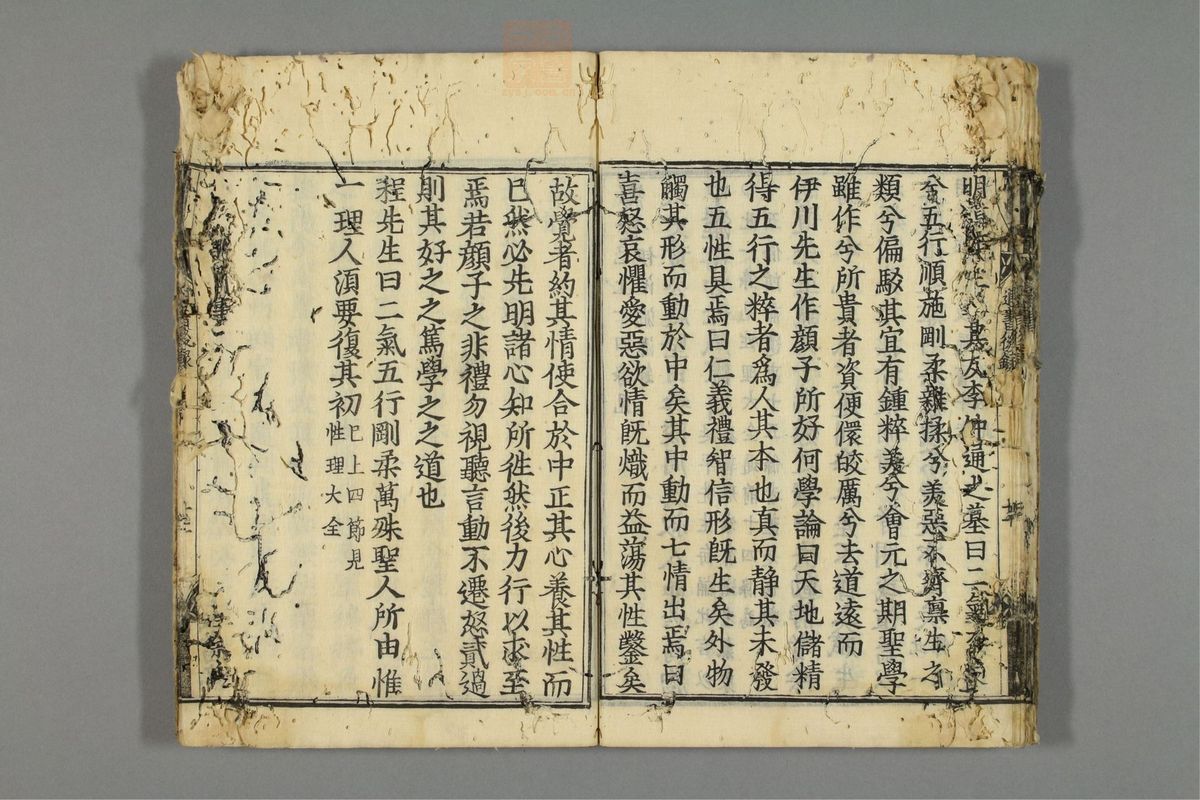 明道先生
其友李仲通之墓曰二氣
兮五行順施剛柔雜揉兮美惡不齊稟生之
類兮偏駁其宜有鍾粹美兮會元之期聖學
雖作兮所貴者資便儇皎厲兮去道遠而
伊川先生作顔子所好何學論曰天地儲精
得五行之粹者爲人其本也真而静其未發
也五性具焉曰仁義禮智信形旣生矣外物
觸其形而動於中矣其中動而七情出焉曰
喜怒哀懼愛惡欲情旣熾而益蕩其性鑿矣
故覺者約其情使合於中正其心養其性而
已然必先明諸心知所徃然後力行以求至
焉若顔子之非禮勿視聽言動不遷怒貳過
則其好之之篤學之之道也
程先生曰二氣五行剛柔萬殊聖人所由惟
一理人湏要復其初已上四節見
性理大全